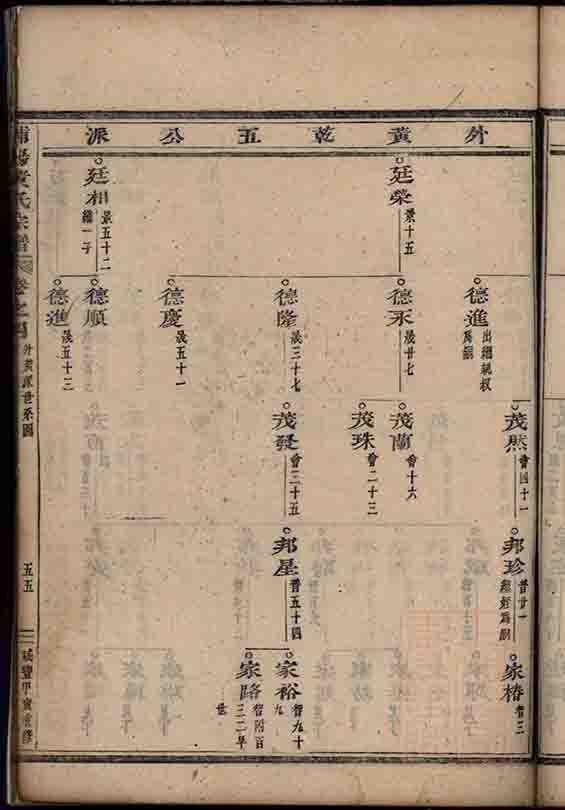 外黃乾五公派
廷榮
景十五
廷相
景五十二
繼一子
德進
出繼
爲嗣
德永
晟廿七
德隆
晟三十七
德慶
晟五十一
德順
德進
晟五十三
茂然
會四十一
茂蘭
會十六
茂珠
會二十三
茂發
會三十五
邦珍
普廿一
爲嗣
邦星
普五十四
家椿
智三
家裕
智九十九
家路
智附百三二
浦陽黃氏宗譜
卷之四
外黃派世系圖
五五
咸豐甲寅重修